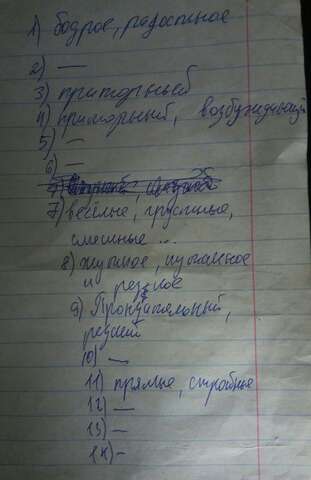 1) бодрое, радостное
2) —
3) приторный
4) приторный, возбуждающий
5) —
6) —
7) весёлые, грустные,
смешные ...
8) жуткое, пугающее
и резкое
9) Пронзительный,
резкий
10) —
11) прямые, стройные
12) —
13) —
14) -